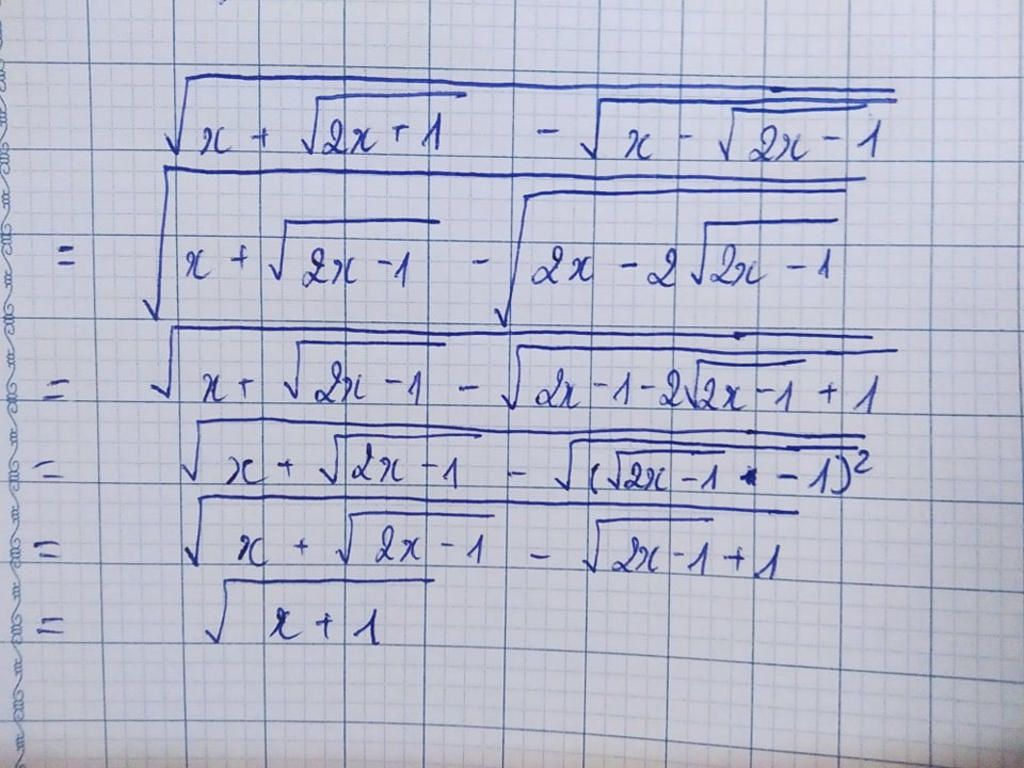 √(x + √(2x + 1) - √(x - √(2x - 1)))
= √(x + √(2x - 1) - √(2x - 2√(2x - 1)))
= √(x + √(2x - 1) - √(2x - 1 - 2√(2x - 1) + 1))
= √(x + √(2x - 1) - √((√(2x - 1) - 1)²))
= √(x + √(2x - 1) - √(2x - 1) + 1)
= √(x + 1)